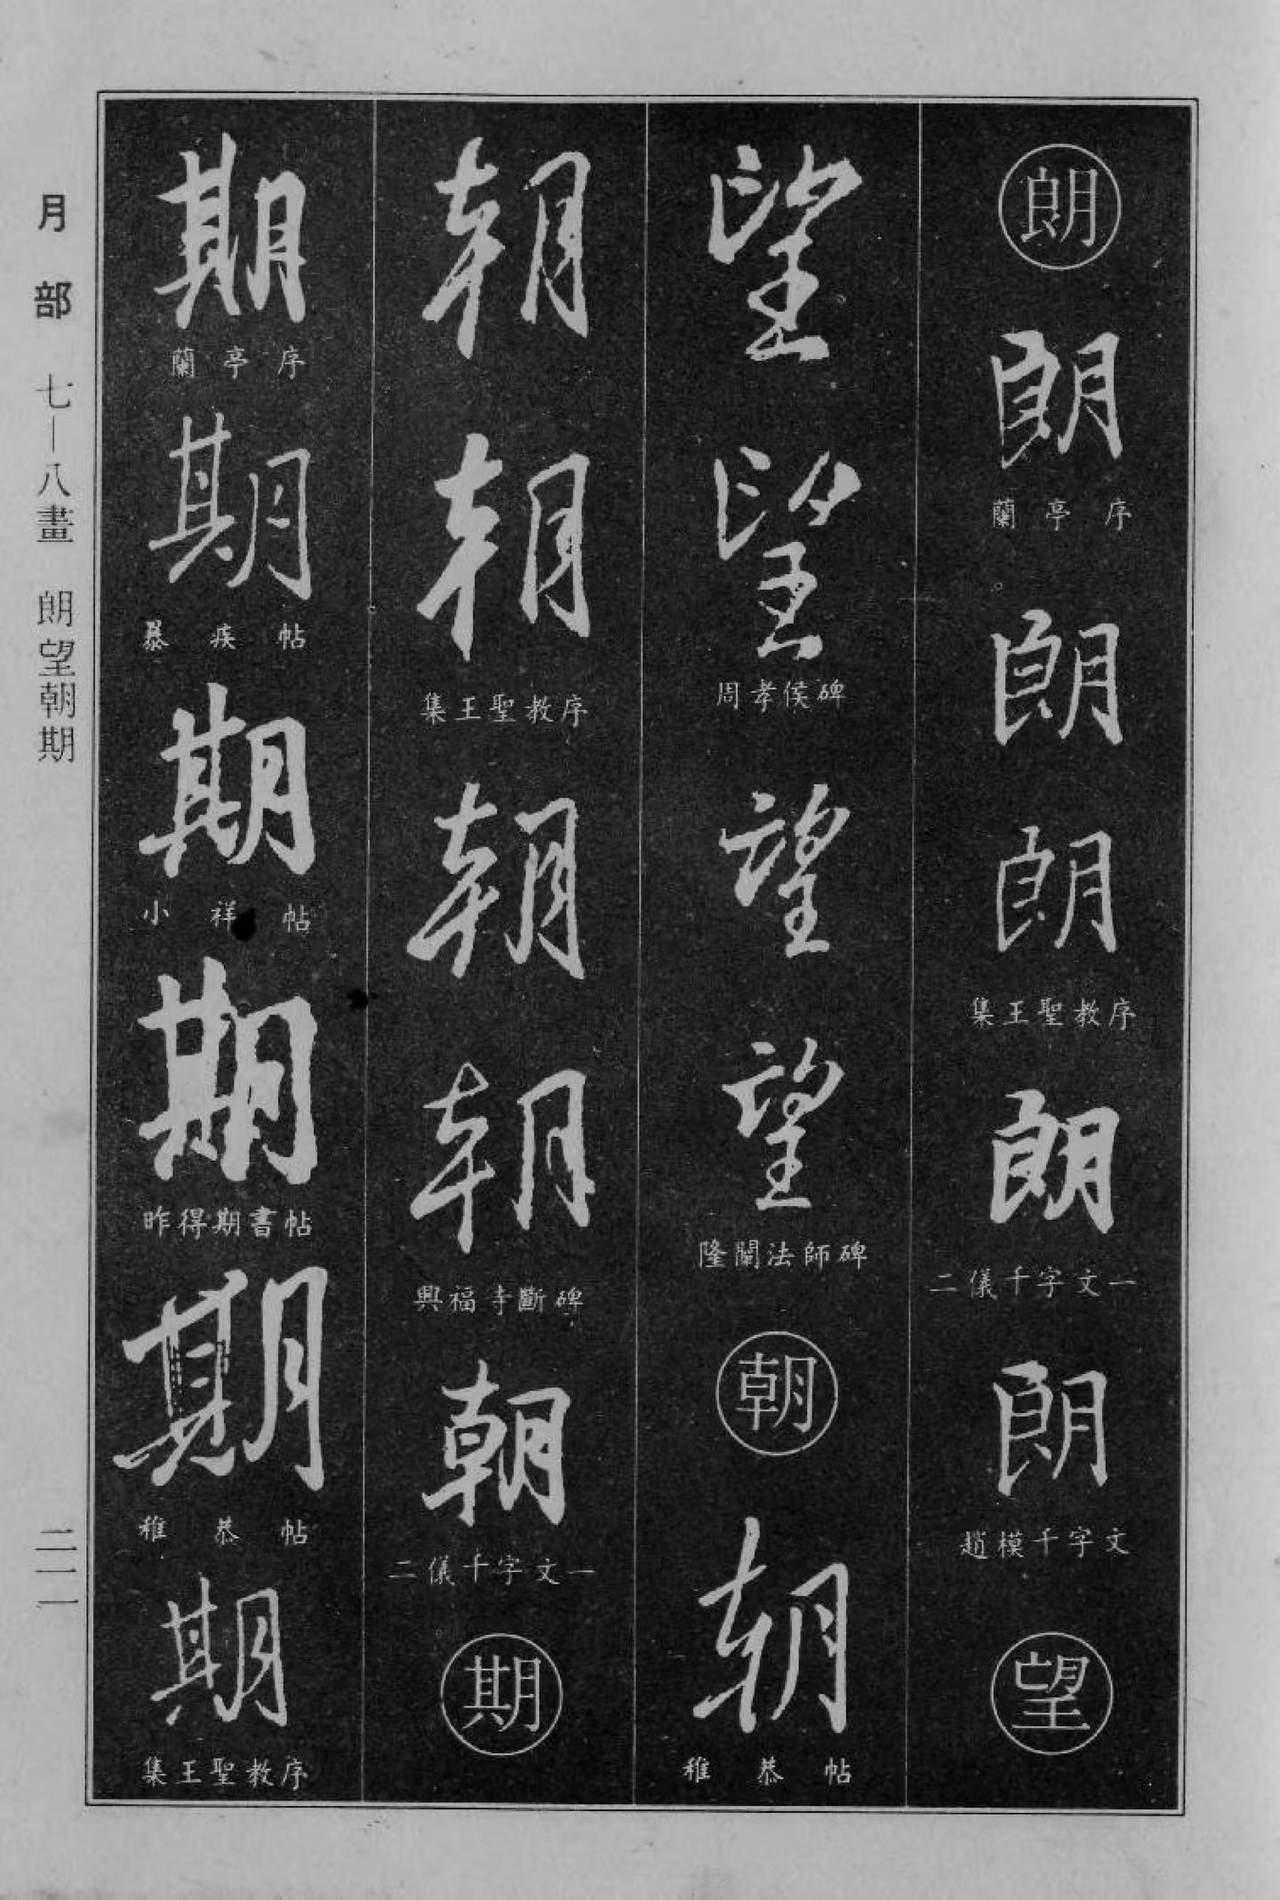 朗
朗
蘭亭序
朗
朗
集王聖教序
朗
二儀千字文一
朗
趙模千字文
望
望
望
周孝侯碑
望
望
隆闡法師碑
朝
朝
稚恭帖
朝
朝
集王聖教序
朝
朝
興福寺斷碑
朝
二儀千字文一
期
期
蘭亭序
期
暴疾帖
期
小祥帖
期
昨得期書帖
期
稚恭帖
期
集王聖教序
月部 七—八畫 朗望朝期
二一一